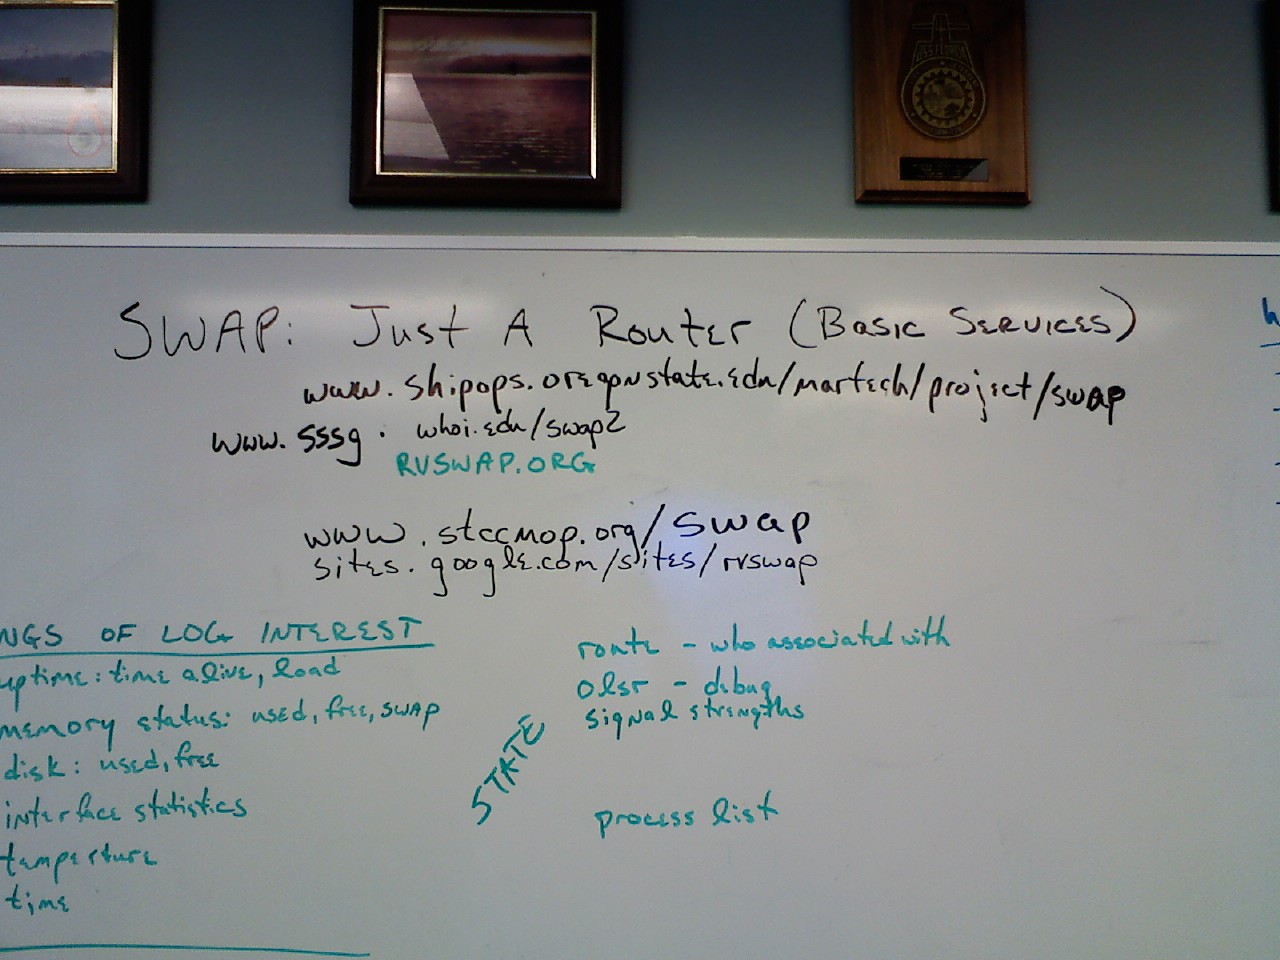 USS FLORIDA
SWAP: Just A Router (Basic Services)
www.shipops.oregonstate.edu/martech/project/swap
www.sssg.whoi.edu/swap2
RVSWAP.ORG
www.stccmop.org/swap
sites.google.com/sites/rvswap
NGS OF LOG INTEREST
uptime: time alive, load
memory status: used, free, swap
disk: used, free
interface statistics
temperture
time
STATE
route - who associated with
olsr - debug
signal strengths
process list